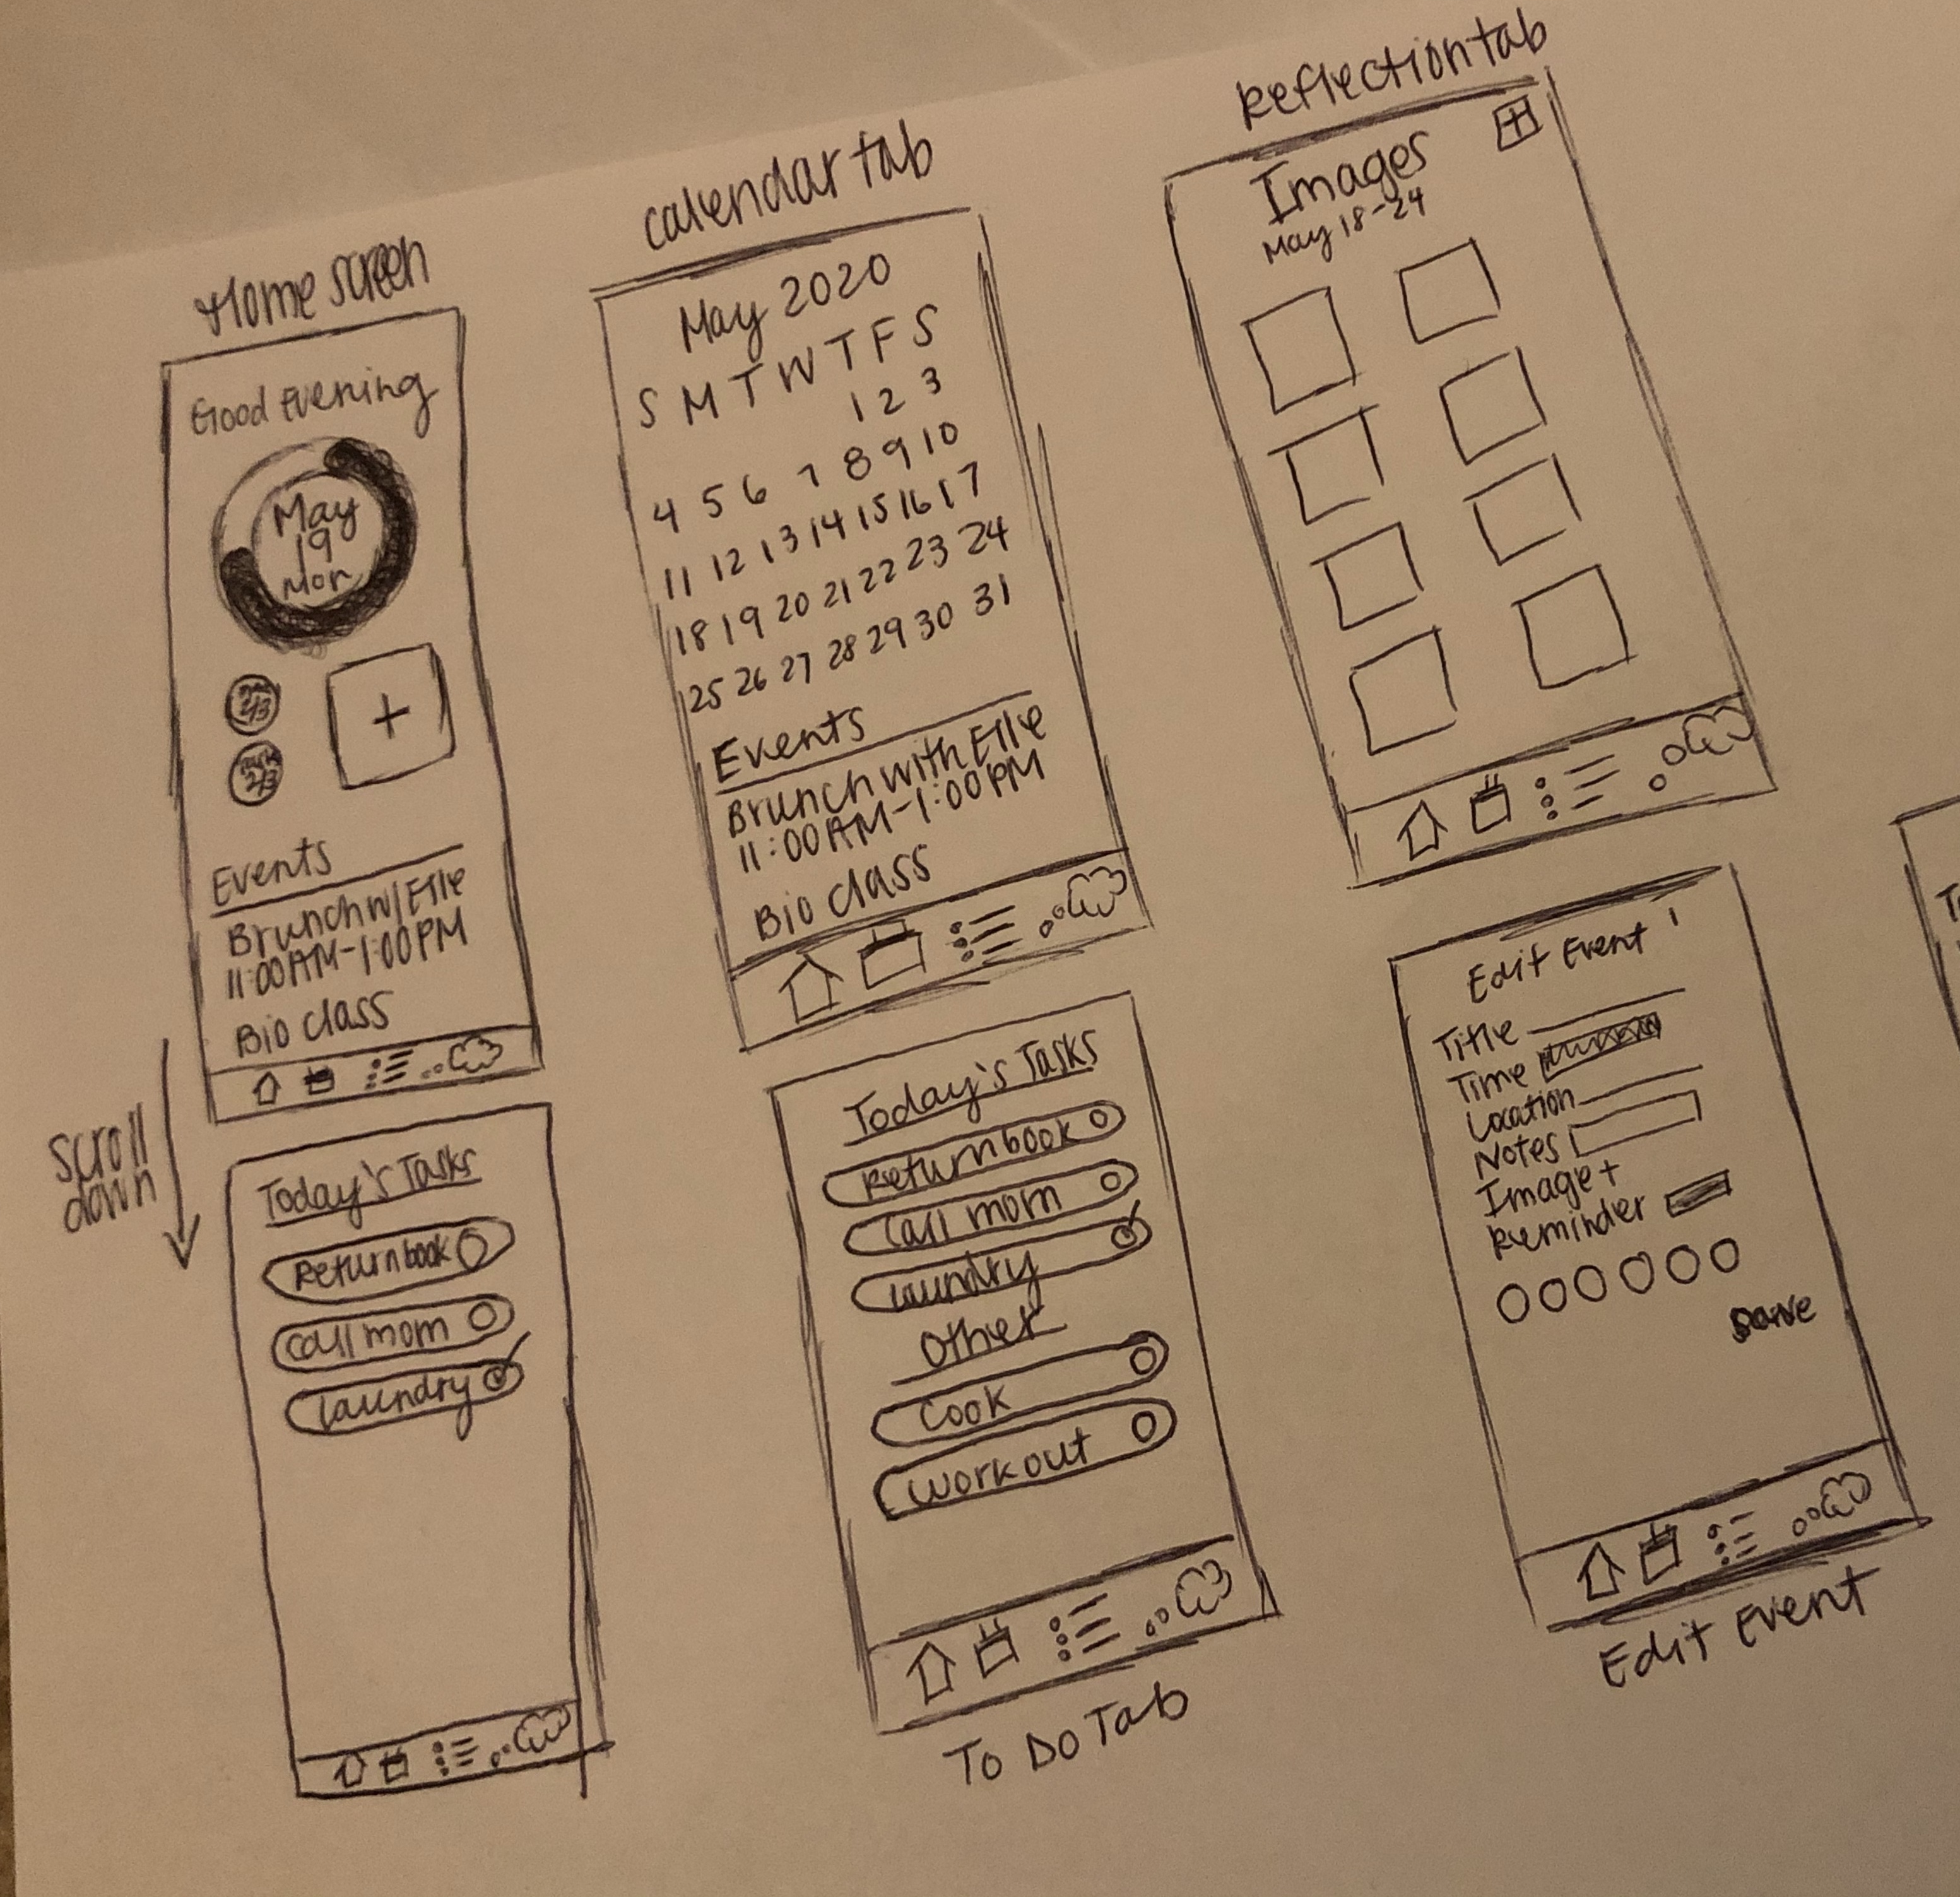 Home screen
Good Evening
May
19
Mon
2/3
2/3
+
Events
Brunch w/ Elle
11:00AM-1:00PM
Bio class
scroll
down
Today's Tasks
Return book
call mom
laundry
calendar tab
May 2020
S M T W T F S
1 2 3
4 5 6 7 8 9 10
11 12 13 14 15 16 17
18 19 20 21 22 23 24
25 26 27 28 29 30 31
Events
Brunch with Elle
11:00AM-1:00PM
Bio class
Today's Tasks
Return book
call mom
laundry
Other
Cook
workout
To Do Tab
Reflection tab
+
Images
May 18-24
Edit Event
Title
Time
Location
Notes
Image +
Reminder
save
Edit Event